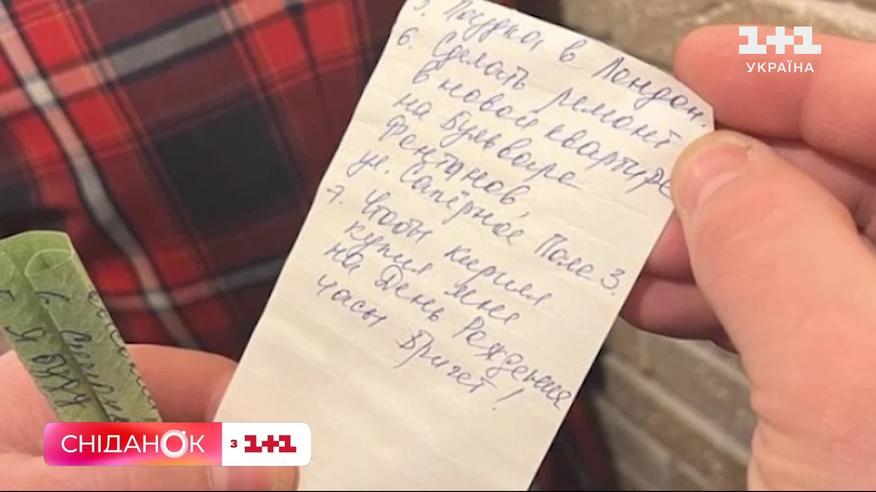 5. Поездка в Лондон.
6. Сделать ремонт
в новой квартире
на бульваре
Фонтанов,
ул. Сапёрное Поле 3.
7. Чтобы Кирилл
купил мне
на День Рождения
часы Бригет!
1+1
УКРАЇНА
СНІДАНОК
З 1+1